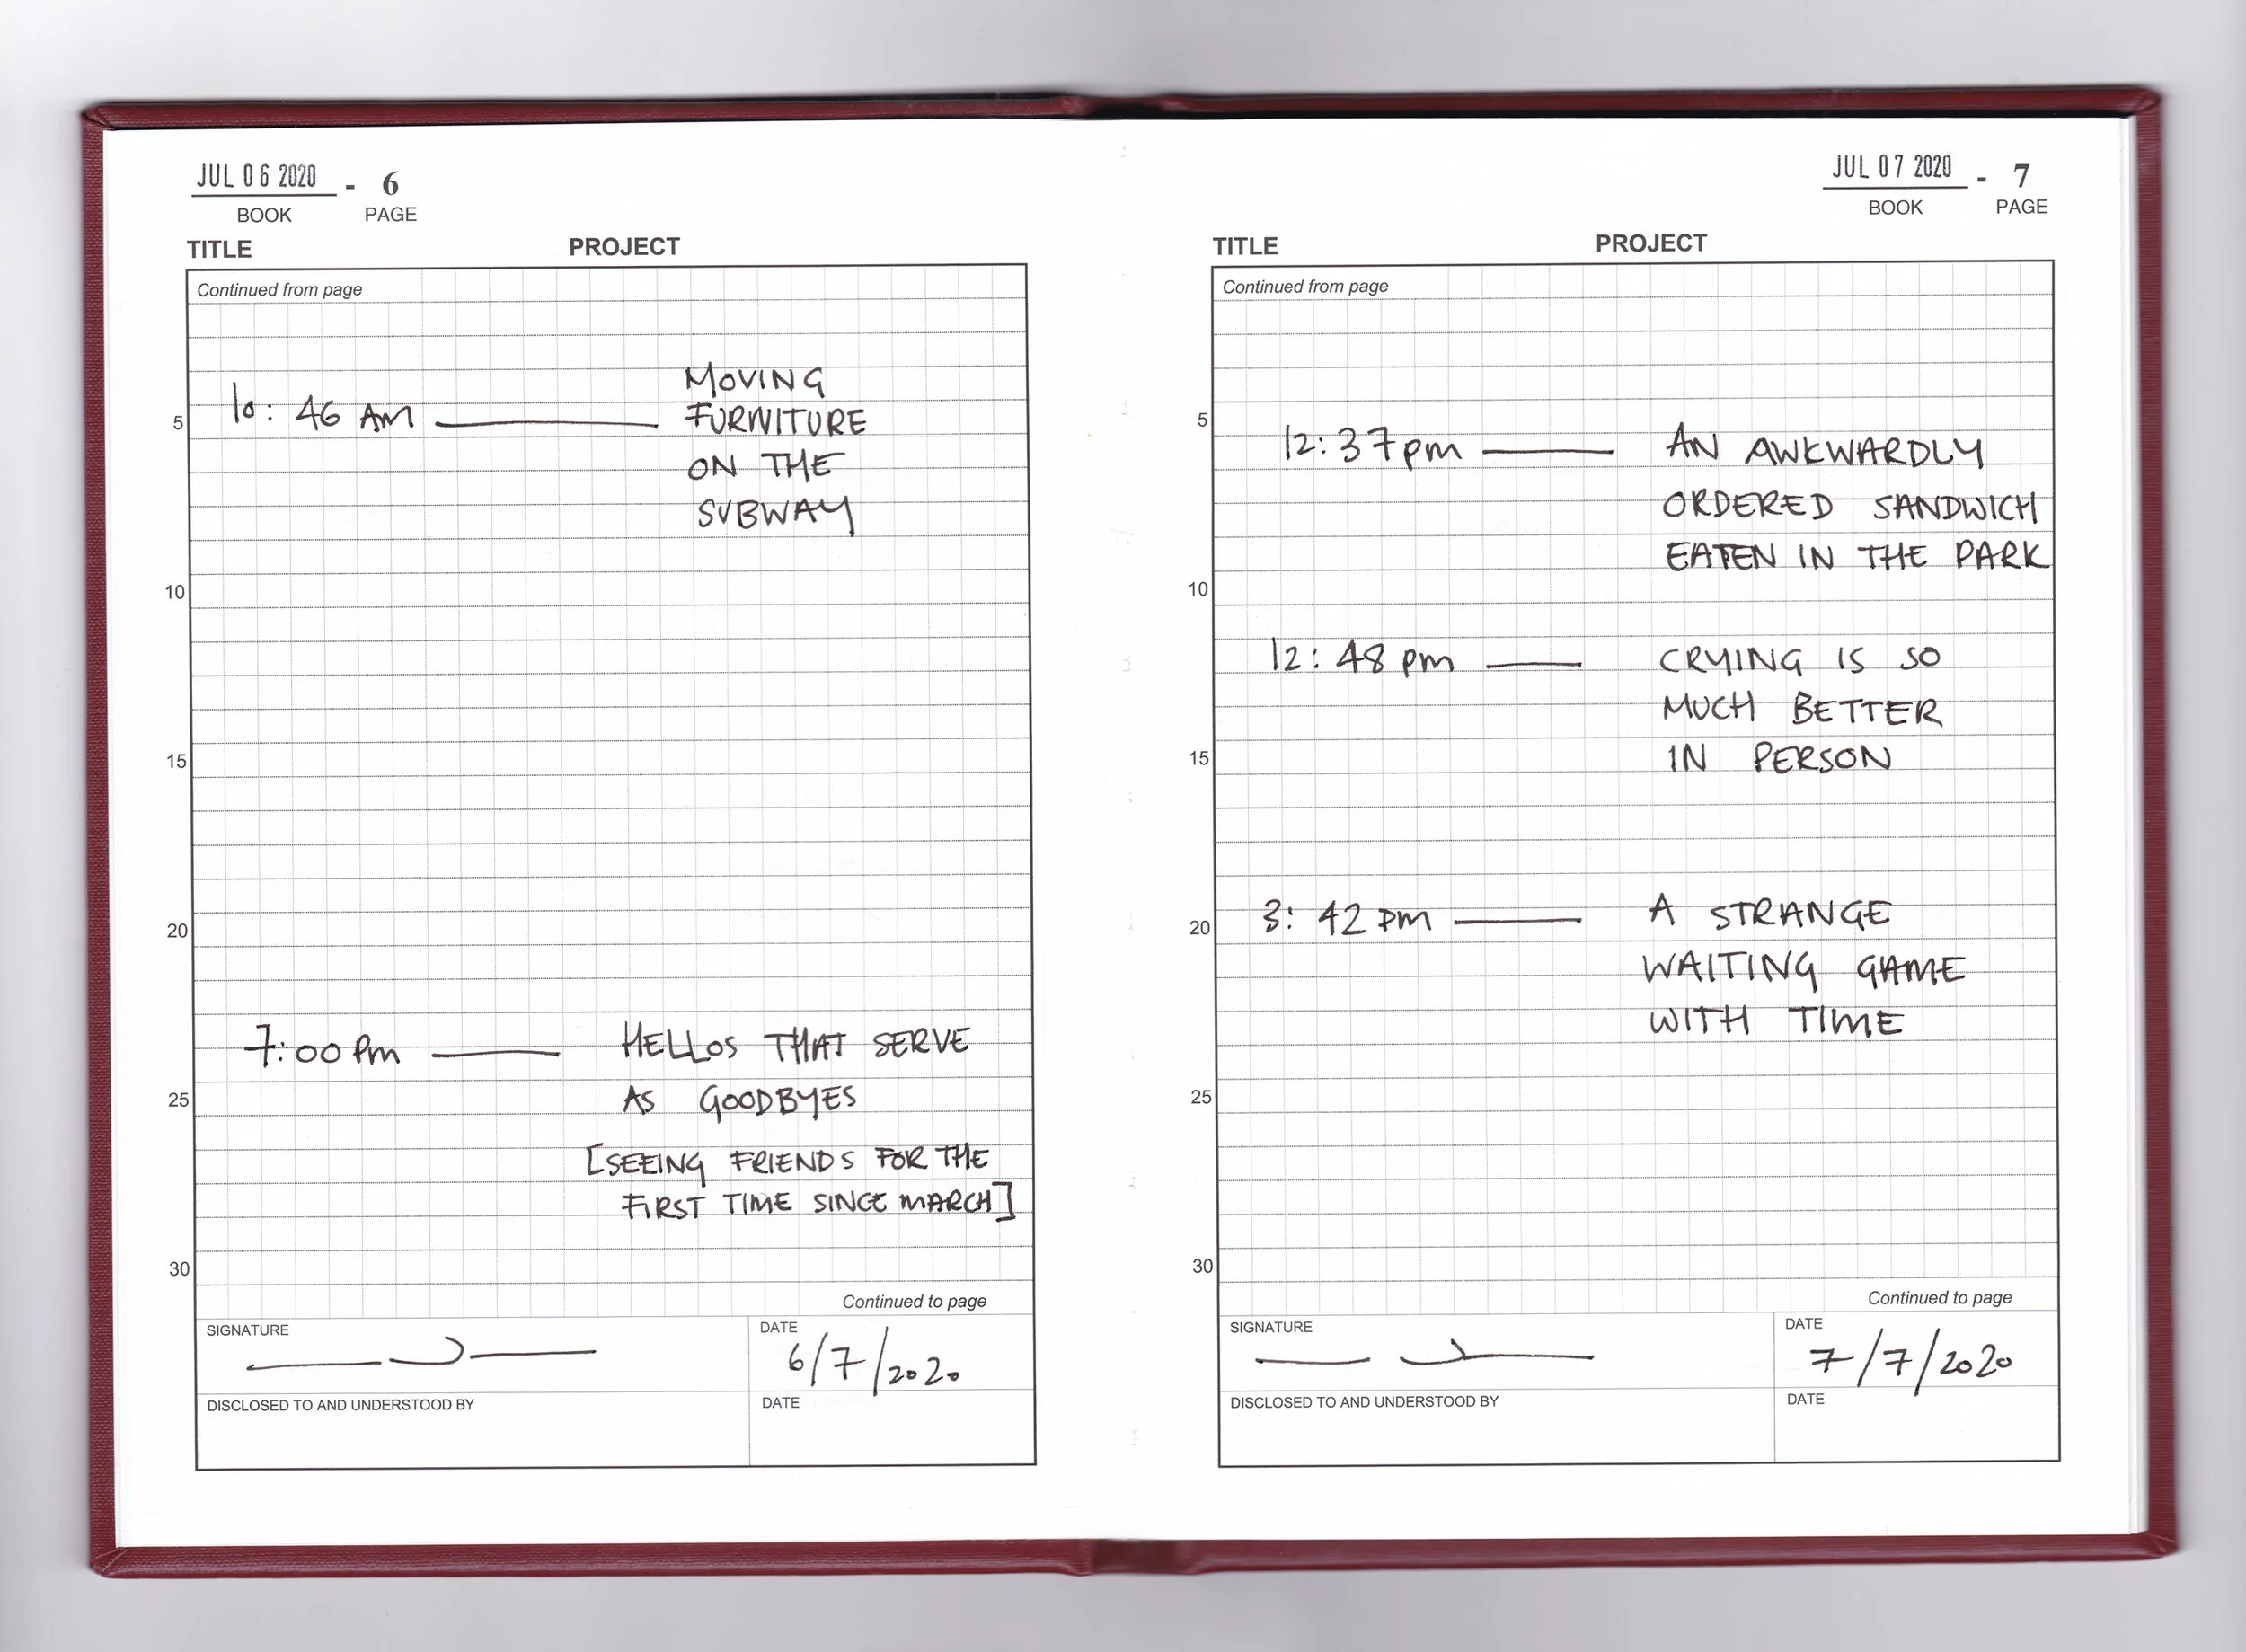 JUL 06 2020 - 6
BOOK PAGE
TITLE PROJECT
Continued from page
10:46 AM — MOVING
5 FURNITURE
ON THE
SUBWAY
10
15
20
7:00 PM — HELLOS THAT SERVE
25 AS GOODBYES
[SEEING FRIENDS FOR THE
FIRST TIME SINCE MARCH]
30
Continued to page
SIGNATURE DATE
6/7/2020
DISCLOSED TO AND UNDERSTOOD BY DATE
JUL 07 2020 - 7
BOOK PAGE
TITLE PROJECT
Continued from page
5
12:37 pm — AN AWKWARDLY
ORDERED SANDWICH
EATEN IN THE PARK
10
12:48 pm — CRYING IS SO
MUCH BETTER
15 IN PERSON
20 3:42 pm — A STRANGE
WAITING GAME
WITH TIME
25
30
Continued to page
SIGNATURE DATE
7/7/2020
DISCLOSED TO AND UNDERSTOOD BY DATE